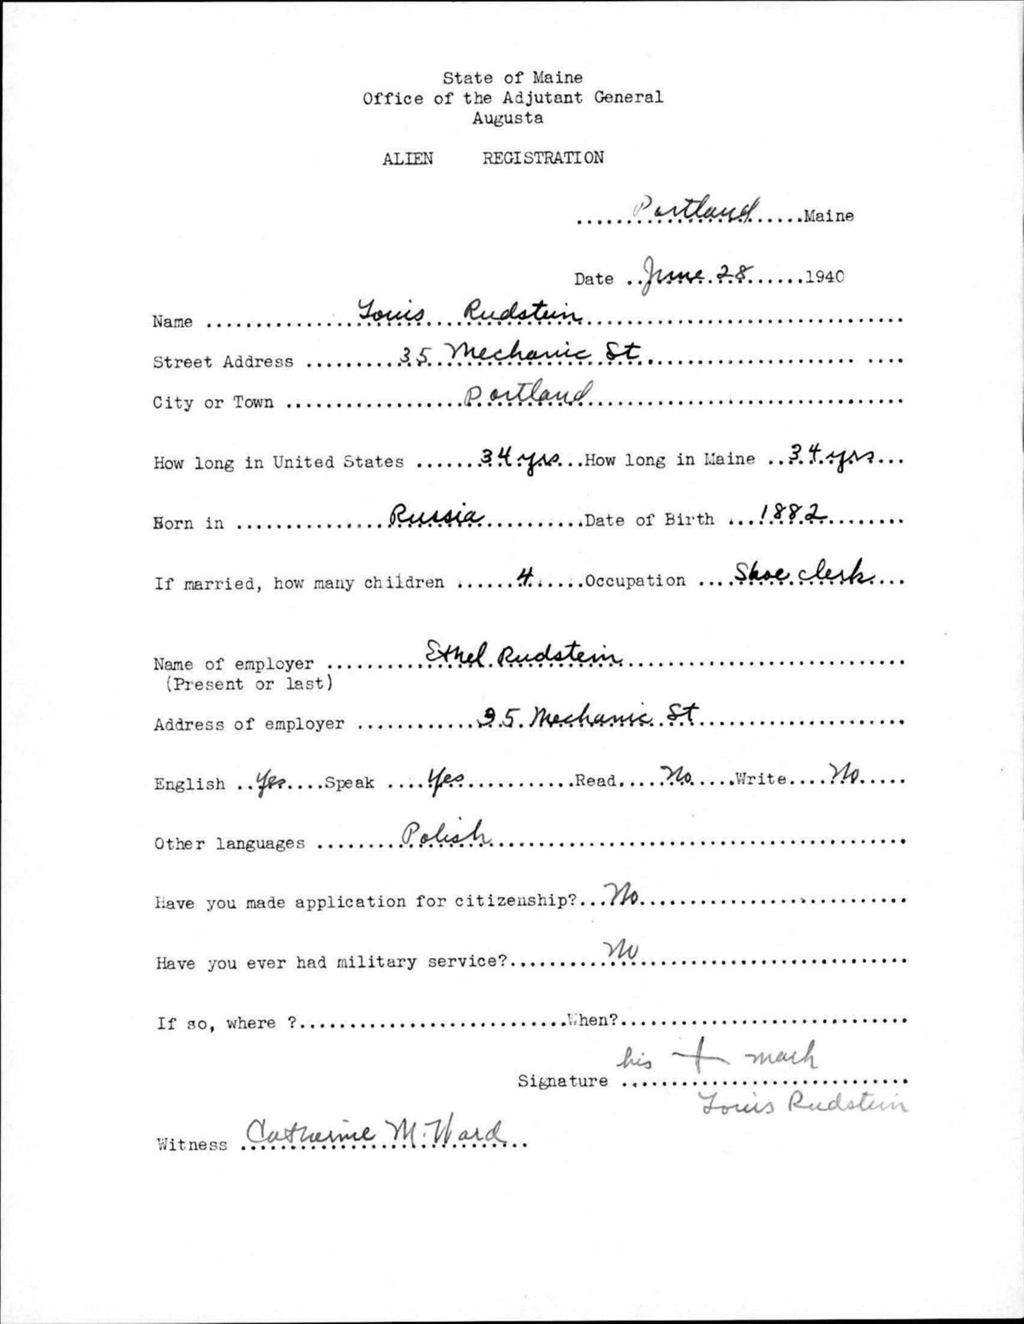 State of Maine
Office of the Adjutant General
Augusta
ALIEN REGISTRATION
......Portland.....Maine
Date ..June 28......1940
Name ...............Louis Rudstein..............................
Street Address .........35 Mechanic St......................... ....
City or Town .................Portland..............................
How long in United States ......34 yrs...How long in Maine ..34 yrs...
Born in ...............Russia..........Date of Birth ...1882........
If married, how many children ......4.....Occupation ....Shoe clerk...
Name of employer ..........Ethel Rudstein...........................
(Present or last)
Address of employer ............35 Mechanic St....................
English ..Yes....Speak ....Yes...........Read....No.....Write....No.....
Other languages .........Polish.....................................
Have you made application for citizenship?...No.........................
Have you ever had military service?.........No.........................
If so, where ?..........................When?............................
his + mark
Signature ............................
Louis Rudstein
Witness Catherine M. Ward..